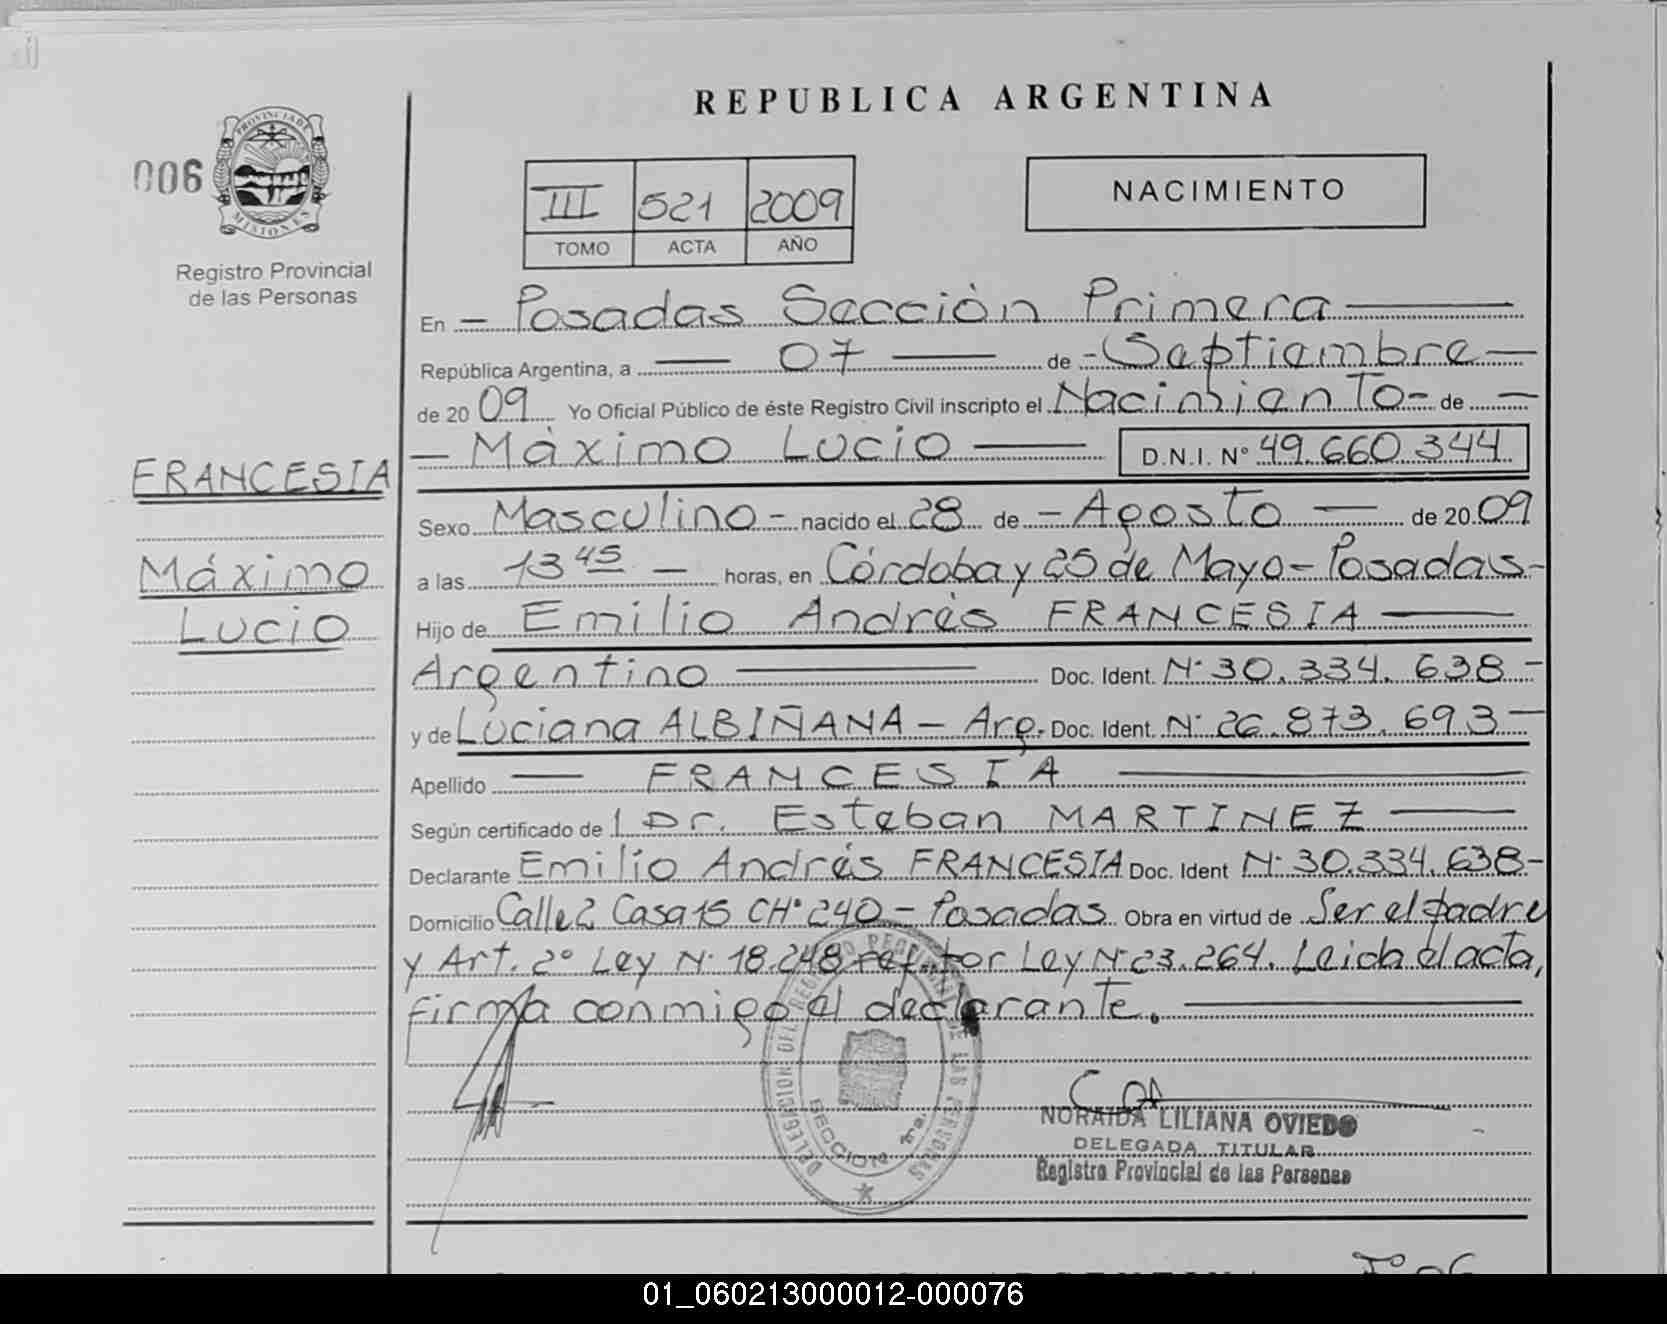 REPUBLICA ARGENTINA
006
PROVINCIA DE
MISIONES
Registro Provincial
de las Personas
III 521 2009
TOMO ACTA AÑO
NACIMIENTO
En - Posadas Sección Primera
República Argentina, a 07 de - Septiembre
de 2009 Yo Oficial Público de éste Registro Civil inscripto el Nacimiento - de
- Máximo Lucio D.N.I. N° 49.660.344
FRANCESIA
Máximo
Lucio
Sexo Masculino - nacido el 28 de - Agosto de 2009
a las 13 45 horas, en Córdoba y 25 de Mayo - Posadas -
Hijo de Emilio Andrés FRANCESIA
Argentino Doc. Ident. N° 30.334.638 -
y de Luciana ALBIÑANA - Arg. Doc. Ident. N° 26.873.693 -
Apellido FRANCESIA
Según certificado de Dr. Esteban MARTINEZ
Declarante Emilio Andrés FRANCESIA Doc. Ident N° 30.334.638 -
Domicilio Calle 2 Casa 15 CH° 240 - Posadas Obra en virtud de Ser el padre
y Art. 2° Ley N° 18.248 ref. por Ley N° 23.264. Leida el acta,
firma conmigo el declarante.
DELEGACION DEL REGISTRO PROVINCIAL DE LAS PERSONAS
SECCION 1ra.
NORAIDA LILIANA OVIEDO
DELEGADA TITULAR
Registro Provincial de las Personas
01_060213000012-000076